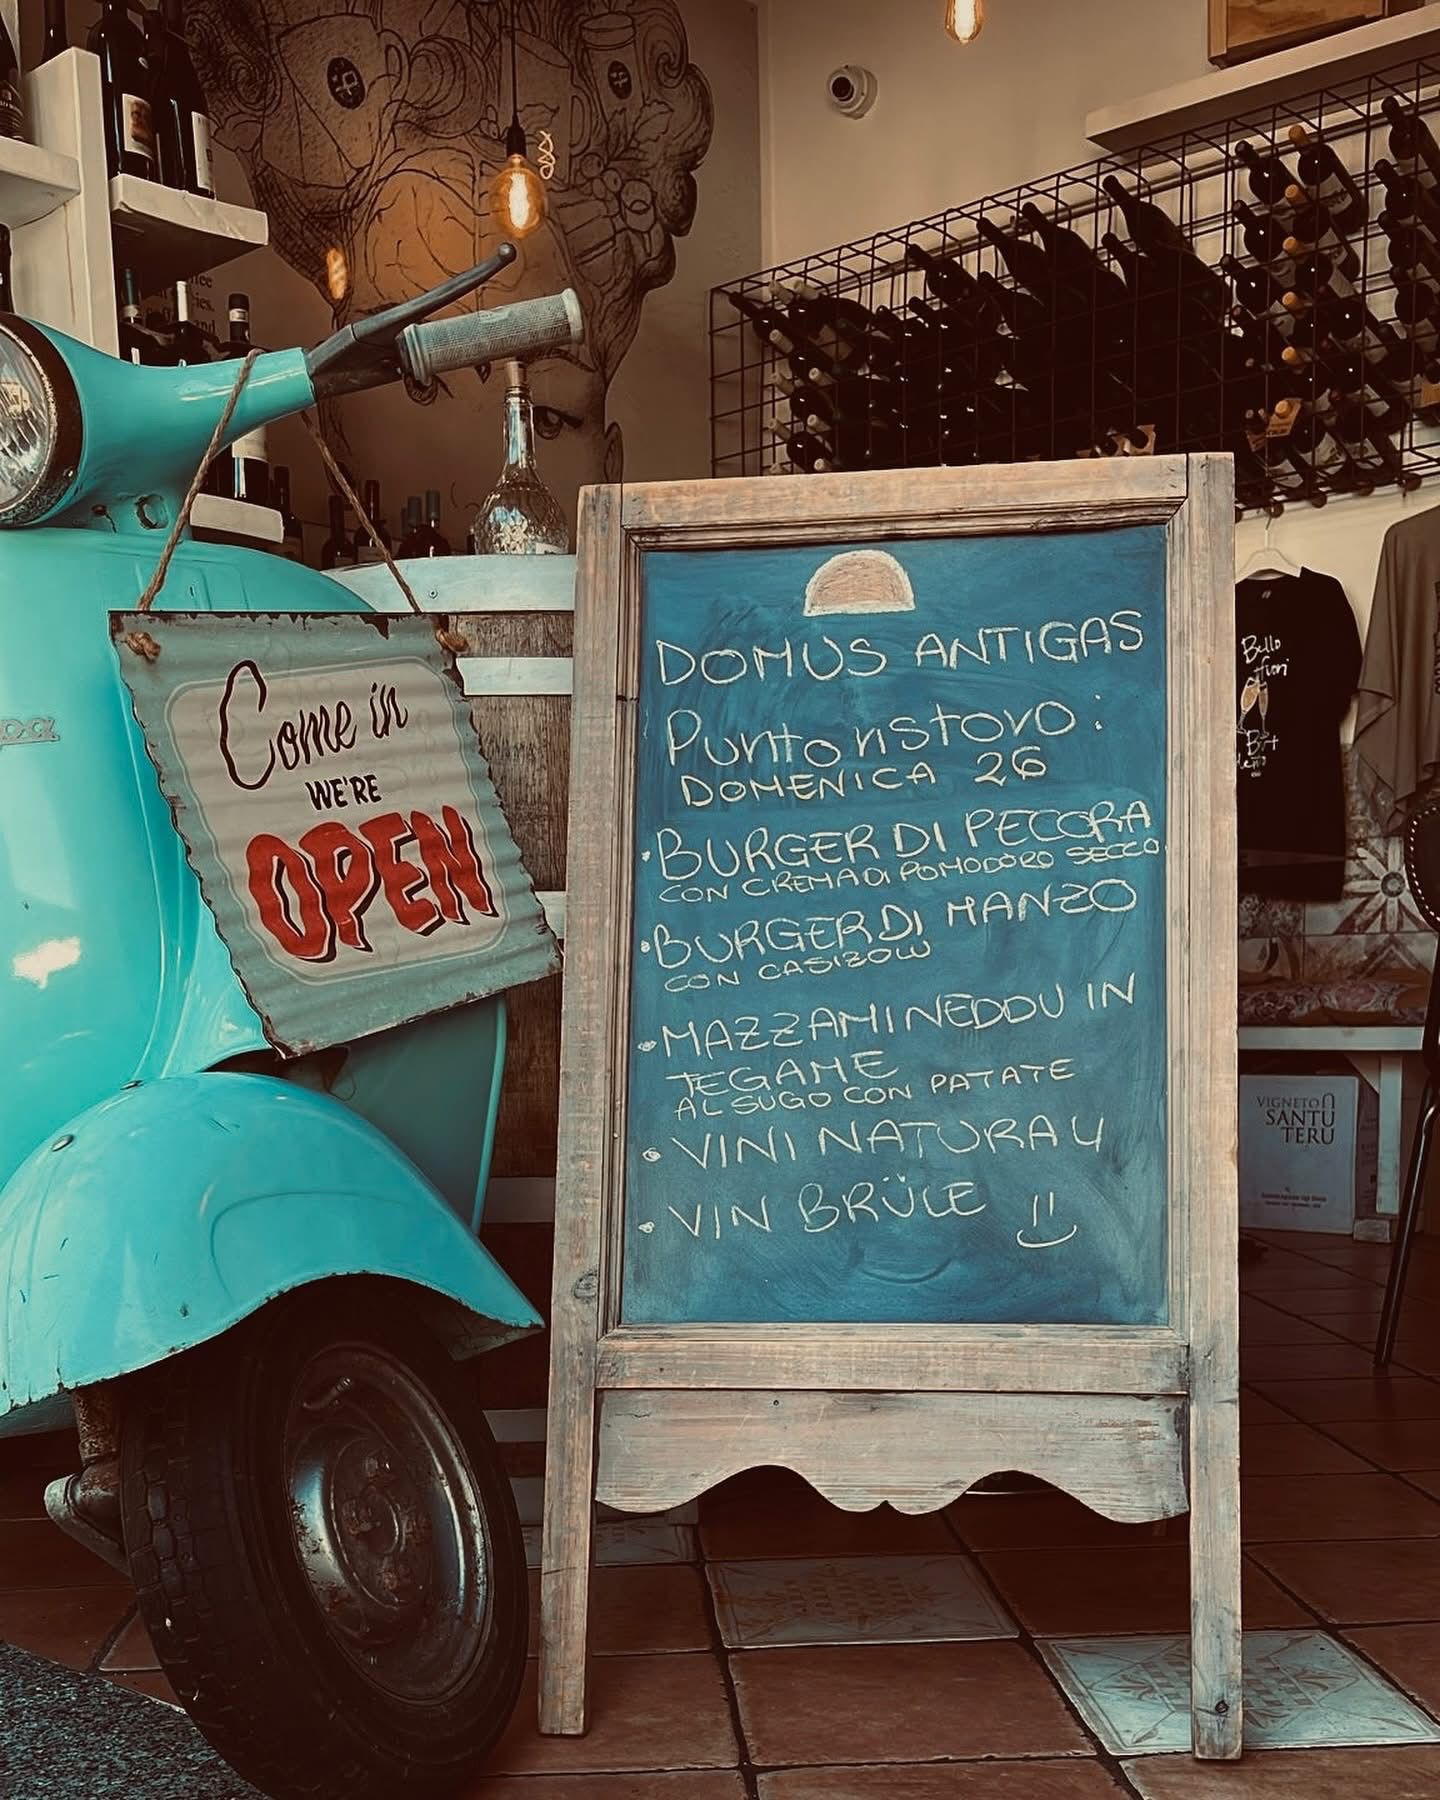 Come in
WE'RE
OPEN
DOMUS ANTIGAS
Punto ristoro:
DOMENICA 26
• BURGER DI PECORA
CON CREMA DI POMODORO SECCO
• BURGER DI MANZO
CON CASIZOLU
• MAZZAMINEDDU IN
TEGAME
AL SUGO CON PATATE
• VINI NATURALI
• VIN BRÜLE
Bello
fuori
VIGNETO
SANTU
TERU